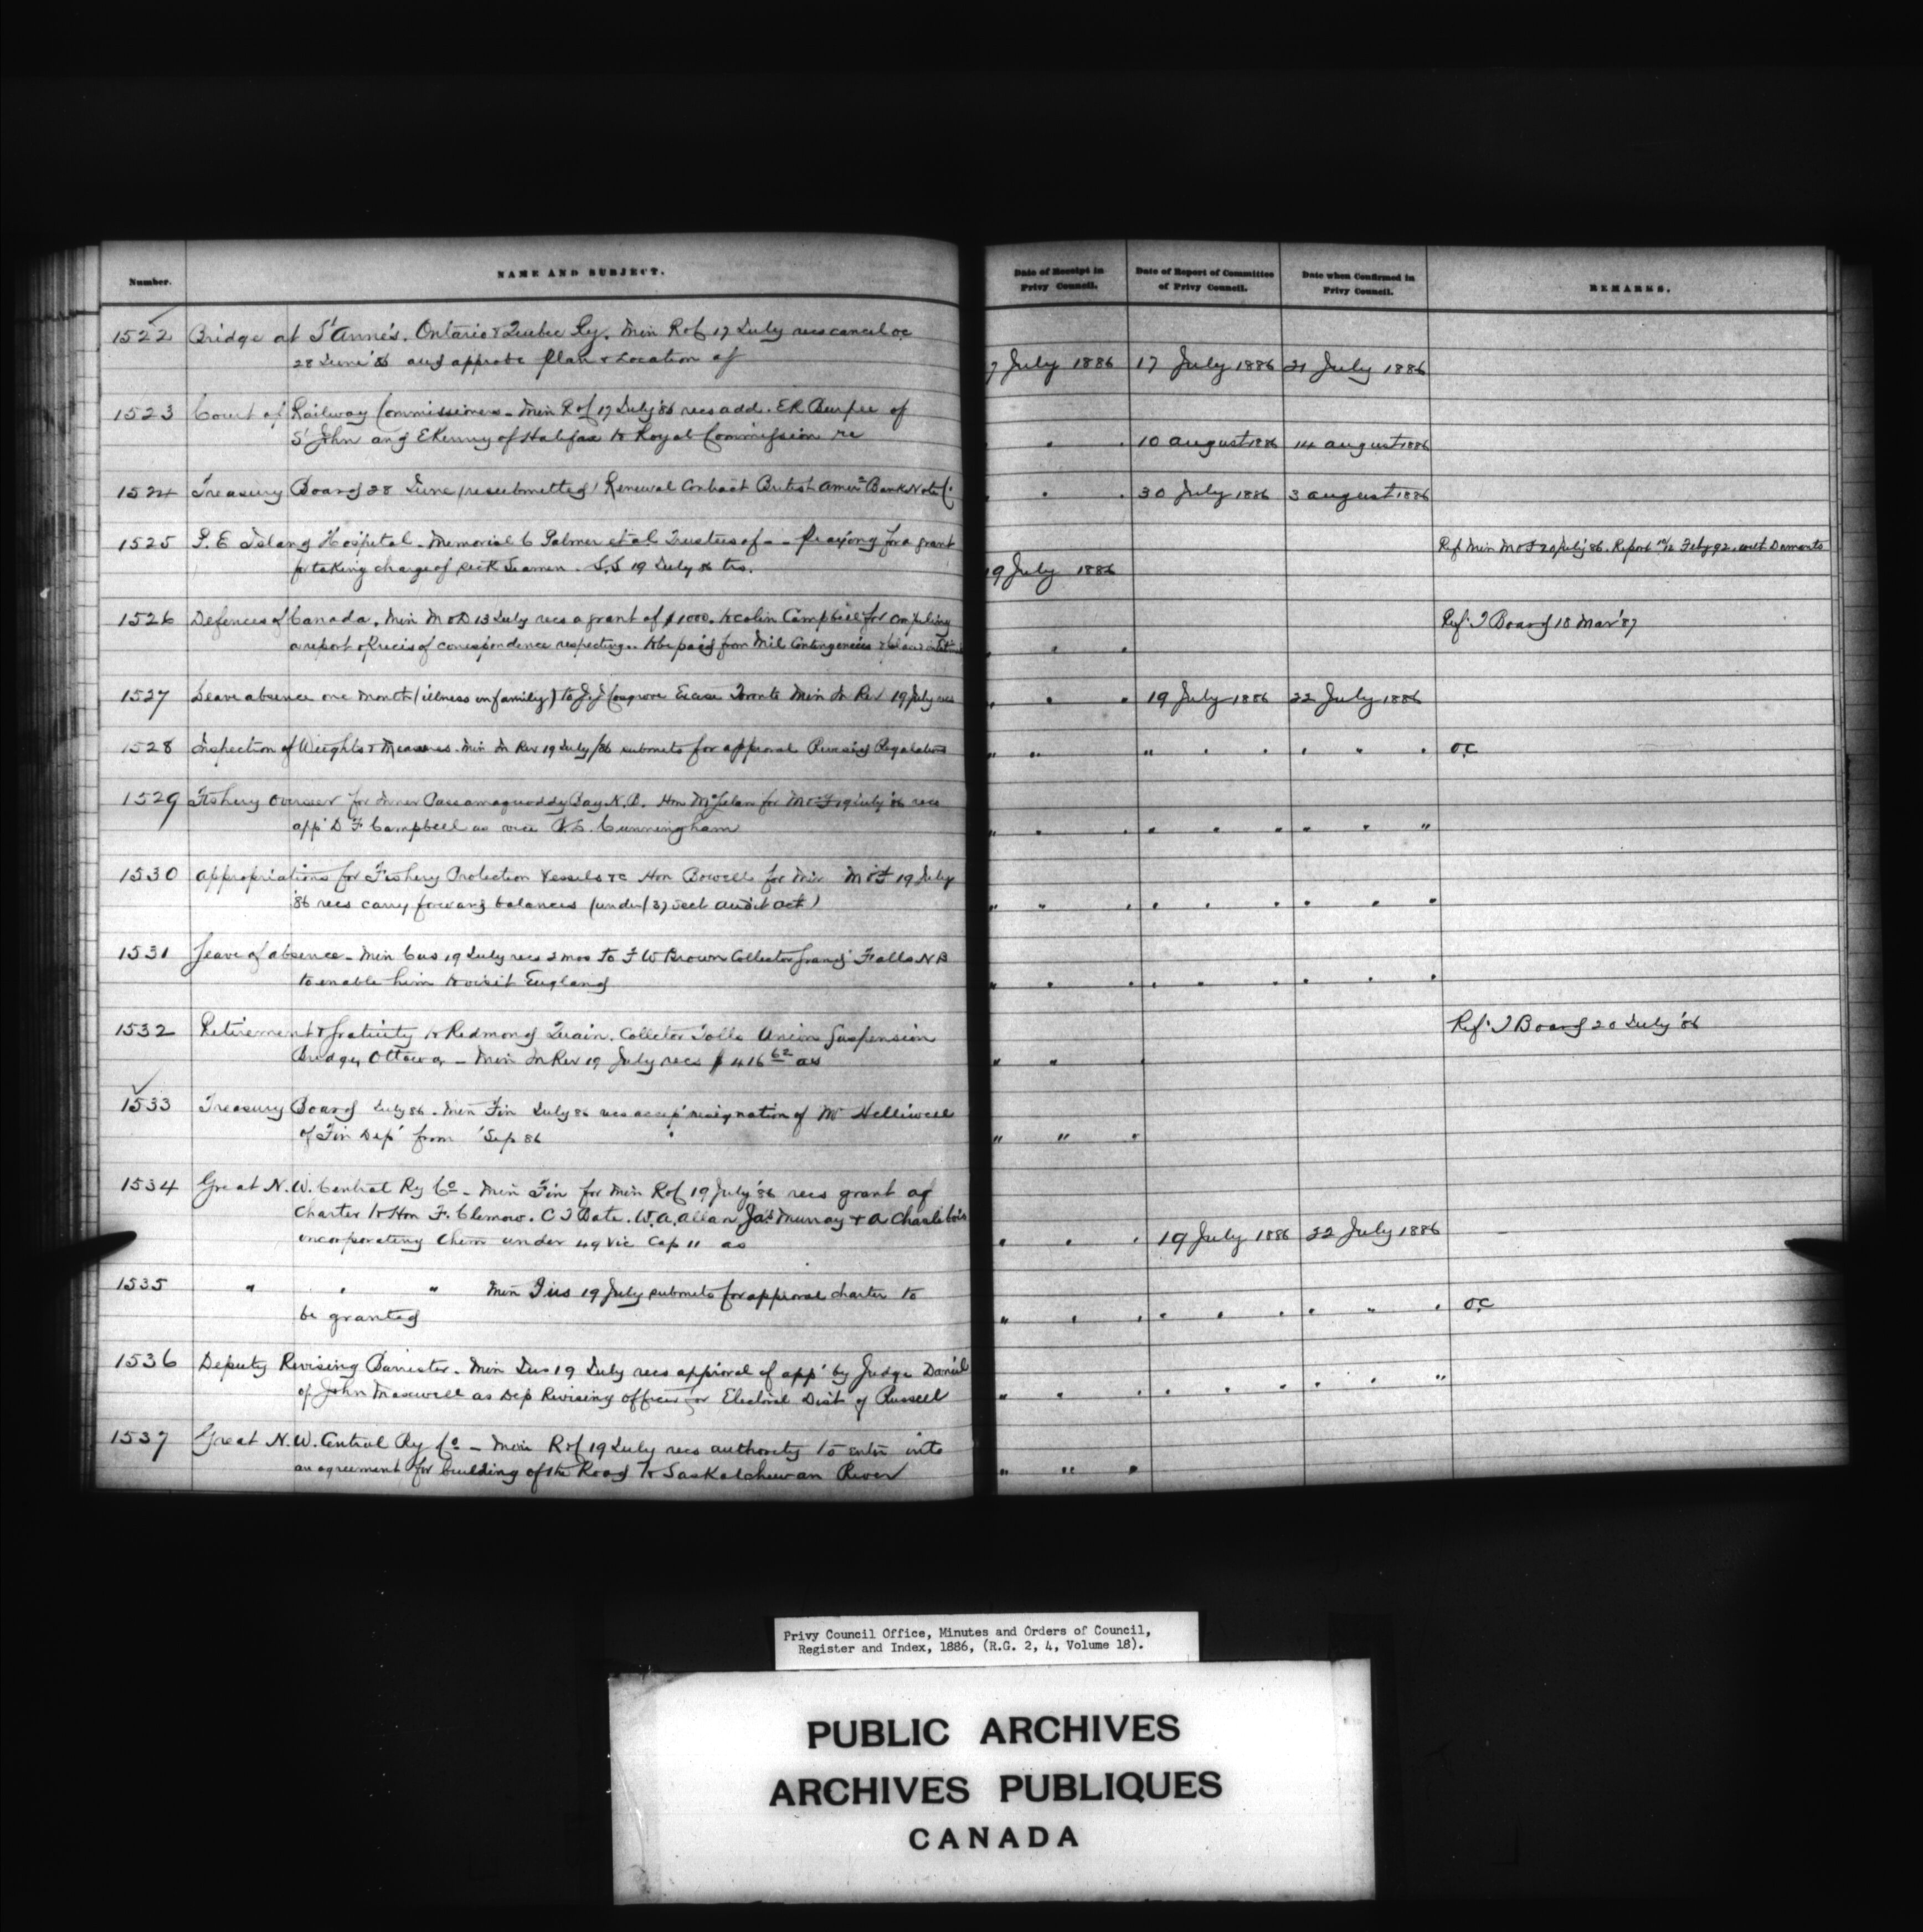 Number.
NAME AND SUBJECT.
Date of Receipt in Privy Council.
Date of Report of Committee of Privy Council.
Date when Confirmed in Privy Council.
REMARKS.
1522 Bridge at St Anne's. Ontario & Quebec Ry. Min R of 17 July recs cancel oc
28 June '86 and approve plan & Location of
7 July 1886 17 July 1886 21 July 1886
1523 Court of Railway Commissioners - Min R of 17 July '86 recs add. E R Burpee of
St John and E Kenny of Halifax to Royal Commission re
" " " 10 august 1886 14 august 1886
1524 Treasury Board 28 June (resubmitted) Renewal Contract British Amern Bank Note Co
" " " 30 July 1886 3 august 1886
1525 P. E Island Hospital - Memorial C Palmer et al Trustees of - - praying for a grant
for taking charge of sick Seamen. S.S 19 July 86 trs.
19 July 1886
Ref Min M & F 20 July '86. Report Feby 92.
1526 Defences of Canada. Min M & D 13 July recs a grant of $1000. to Colin Campbell for compiling
a report & precis of correspondence respecting.. to be paid from Mil Contingencies
" " "
Ref. T Board 18 Mar '87
1527 Leave absence one month (illness in family) to J. J Cosgrove Excise Toronto Min In Rev 19 July recs
" " " 19 July 1886 22 July 1886
1528 Inspection of Weights & Measures. Min In Rev 19 July /86 submits for approval Revised Regulations
" " " " " " " " O.C
1529 Fishery Overseer for Inner Passamaquoddy Bay N.B. Hon McLelan for M & F 19 July '86 recs
app' D F Campbell as vice Cunningham
" " " " " " " " "
1530 Appropriations for Fishery Protection Vessels &c Hon Bowell for Min M & F 19 July
'86 recs carry forward balances (under 37 sect audit act)
" " " " " " " " "
1531 Leave of absence - Min Cus 19 July recs 2 mos to F W Brown Collector Grand Falls N B
to enable him to visit England
" " " " " " " " "
1532 Retirement & Gratuity to Redmond Quain. Collector Tolls Union Suspension
Bridge, Ottawa - Min In Rev 19 July recs $416 62 as
" " "
Ref. T Board 20 July '86
1533 Treasury Board July 86. Min Fin July 86 recs accep' resignation of Mr Helliwell
of Fin Dep' from 'Sep 86
" " "
1534 Great N. W. Central Ry Co - Min Fin for Min R of 19 July '86 recs grant of
Charter to Hon F. Clemow. C T Bate. W. A. Allan Jas Murray & A Charlebois
incorporating them under 49 Vic Cap 11 as
" " " 19 July 1886 22 July 1886
1535 " " " Min Jus 19 July submits for approval charter to
be granted
" " " " " " " " " O.C
1536 Deputy Revising Barrister - Min Jus 19 July recs approval of app' by Judge Daniel
of John Maxwell as Dep Revising officer for Electoral Dist of Russell
" " " " " " " " "
1537 Great N. W. Central Ry Co - Min R of 19 July recs authority to enter into
an agreement for building of the Road to Saskatchewan River
" " "
Privy Council Office, Minutes and Orders of Council,
Register and Index, 1886, (R.G. 2, 4, Volume 18).
PUBLIC ARCHIVES
ARCHIVES PUBLIQUES
CANADA